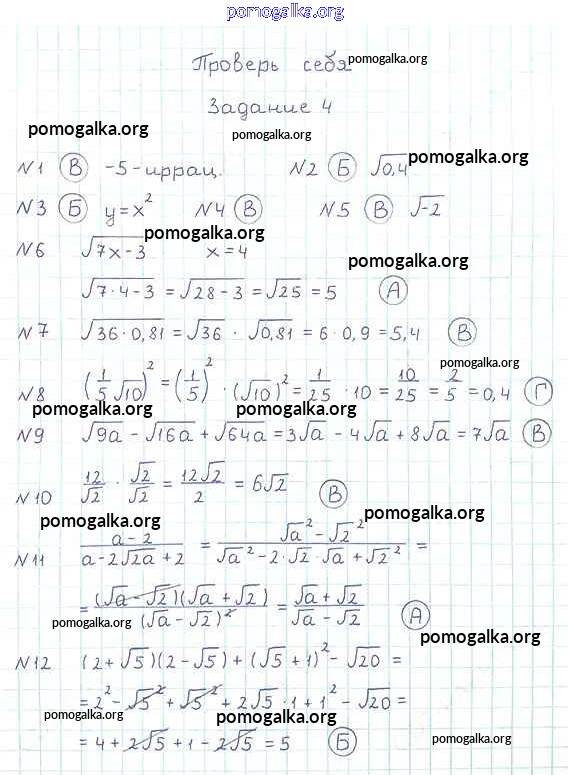 pomogalka.org
Проверь себя pomogalka.org
Задание 4
pomogalka.org pomogalka.org
N1 (В) -5-иррац. N2 (Б) √0,4 pomogalka.org
N3 (Б) y=x² N4 (В) N5 (В) √-2
pomogalka.org
N6 √7x-3 x=4
pomogalka.org
√7·4-3 = √28-3 = √25 = 5 (А)
pomogalka.org
N7 √36·0,81 = √36 · √0,81 = 6·0,9 = 5,4 (В)
pomogalka.org
N8 (1/5 √10)² = (1/5)² · (√10)² = 1/25 · 10 = 10/25 = 2/5 = 0,4 (Г)
pomogalka.org pomogalka.org
N9 √9a - √16a + √64a = 3√a - 4√a + 8√a = 7√a (В)
N10 12/√2 · √2/√2 = 12√2/2 = 6√2 (В)
pomogalka.org pomogalka.org
N11 a-2/a-2√2a+2 = √a²-√2²/√a²-2·√2·√a+√2² =
= (√a-√2)(√a+√2)/(√a-√2)² = √a+√2/√a-√2 (А)
pomogalka.org pomogalka.org
N12 (2+√5)(2-√5)+(√5+1)²-√20 =
= 2²-√5²+√5²+2√5·1+1²-√20 =
pomogalka.org pomogalka.org
= 4+2√5+1-2√5 = 5 (Б) pomogalka.org